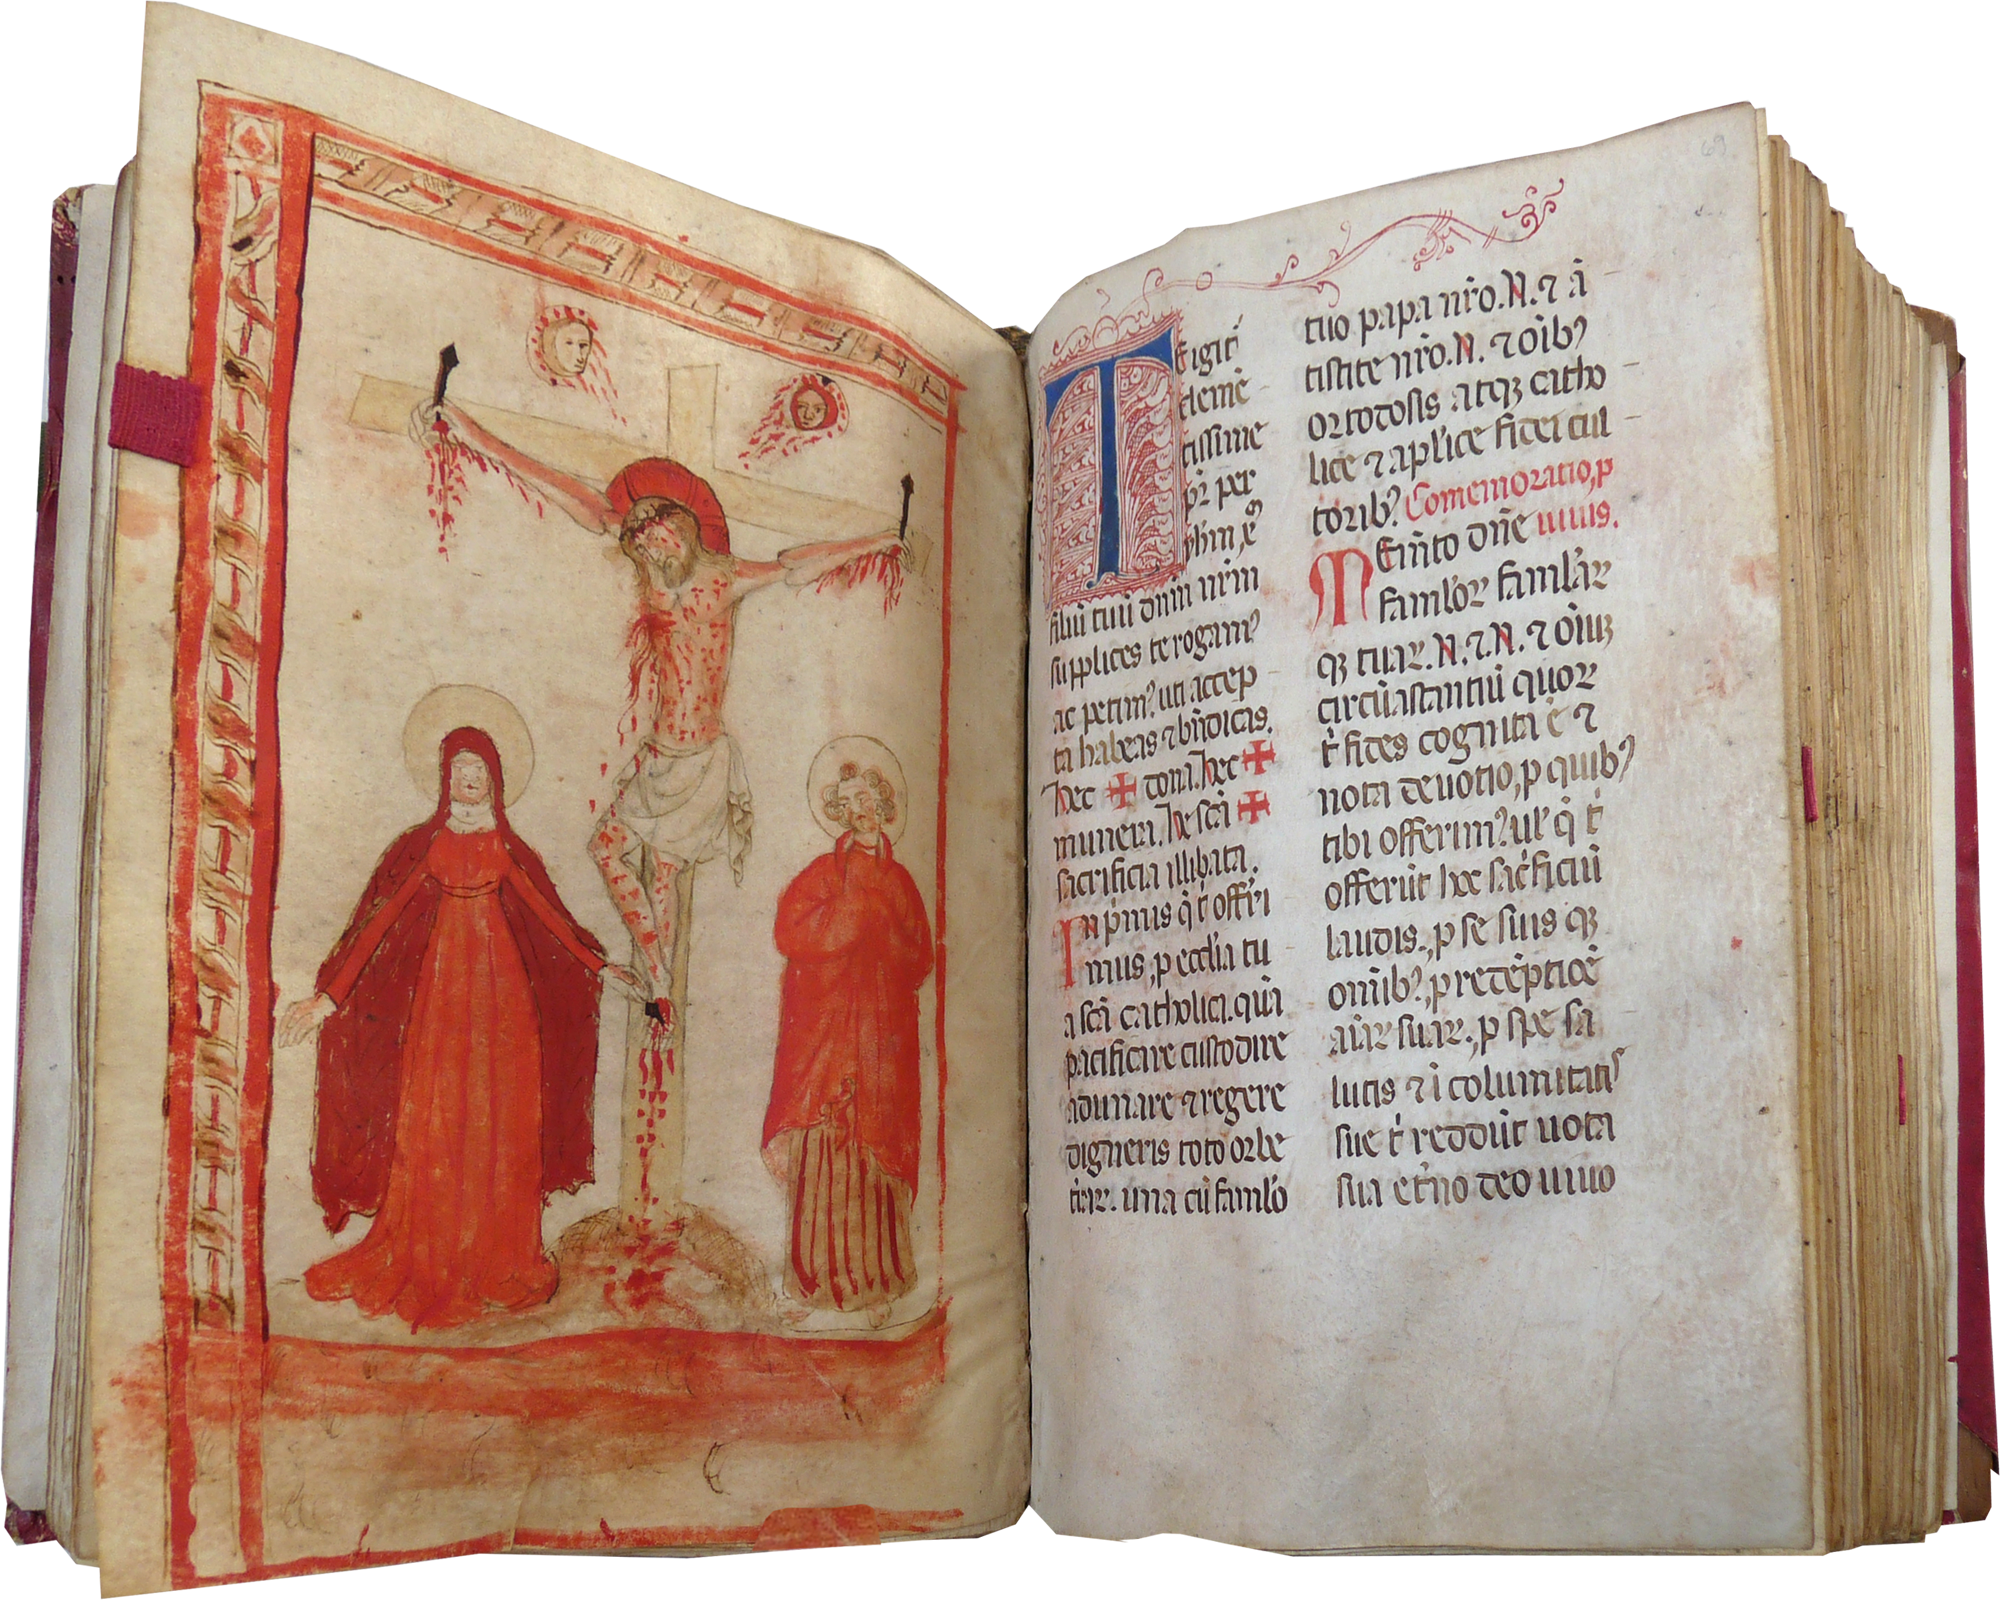 TEigit᷑
clemē
tissime
pr̄ per
yhm xp̄
filiū tuū dnm̄ nr̄m
supplices te rogam⁹
ac petim⁹ uti accep
ta habeas ⁊ bn̄dicas.
hec ✠ dona. hec ✠
munera. hec sc̄a ✠
sacrificia illibata.
In pⁱmis q̄ t̄ offeri
mus, p eccl̄ia tu
a sc̄a catholica. quā
pacificare custodire
adunare ⁊ regere
digneris toto orbe
t̄rar. una cū famlo
69
tuo papa nr̄o. N. ⁊ ā
tistite nr̄o. N. ⁊ oīb⁹
ortodosis atqꝫ catho
lice ⁊ aplīce fidei cul
torib⁹. Comemoratio, p
MEm̄to dn̄e uiuis.
famlor famlar
qꝫ tuar. N. ⁊. N. ⁊ oīuꝫ
circūastantiū quor
t̄ fides cognita ē ⁊
nota deuotio, p quib⁹
tibi offerim⁹. ul̄ q̄ t̄
offerūt hoc sac̄ficiū
laudis., p se suis qꝫ
omīb⁹., p redēptiōē
aīar suar., p spe sa
lutis ⁊ īcolumitatis
sue t̄ reddūt uota
sua et̄no deo uiuo